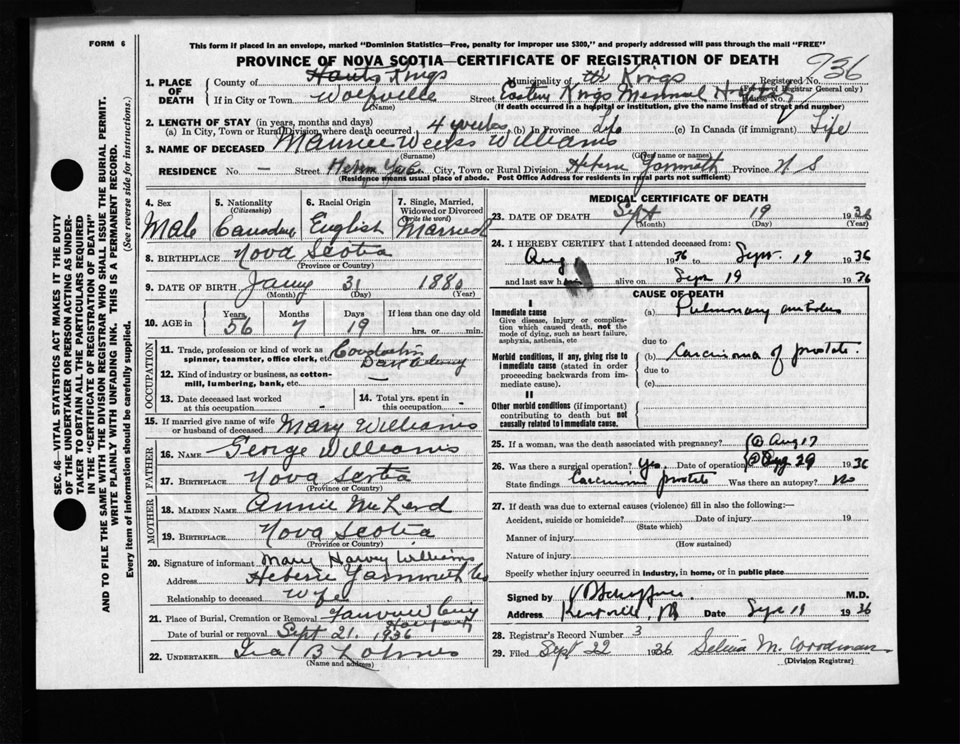 FORM 6
This form if placed in an envelope, marked "Dominion Statistics—Free, penalty for improper use $300," and properly addressed will pass through the mail "FREE"
PROVINCE OF NOVA SCOTIA—CERTIFICATE OF REGISTRATION OF DEATH
936
1. PLACE OF DEATH
County of Hants Kings Municipality of Kings Registered No.
(For use of Registrar General only)
If in City or Town Wolfville Street Eastern Kings Memorial Hospital House No.
(Name) (If death occurred in a hospital or institution, give the name instead of street and number)
2. LENGTH OF STAY (in years, months and days)
(a) In City, Town or Rural Division where death occurred 4 weeks (b) In Province Life (c) In Canada (if immigrant) Life
3. NAME OF DECEASED Maurice Weeks Williams
(Surname) (Given name or names)
RESIDENCE No. — Street Hebron City, Town or Rural Division Hebron Yarmouth Province N S
(Residence means usual place of abode. Post Office Address for residents in rural parts not sufficient)
4. Sex Male
5. Nationality (Citizenship) Canadian
6. Racial Origin English
7. Single, Married, Widowed or Divorced (Write the word) Married
8. BIRTHPLACE Nova Scotia
(Province or Country)
9. DATE OF BIRTH Jany 31 1880
(Month) (Day) (Year)
10. AGE in Years 56 Months 7 Days 19 If less than one day old hrs. or min.
OCCUPATION
11. Trade, profession or kind of work as spinner, teamster, office clerk, etc. Conductor
12. Kind of industry or business, as cotton-mill, lumbering, bank, etc. —
13. Date deceased last worked at this occupation -
14. Total yrs. spent in this occupation -
15. If married give name of wife or husband of deceased Mary Williams
FATHER
16. NAME George Williams
17. BIRTHPLACE Nova Scotia
(Province or Country)
MOTHER
18. MAIDEN NAME Annie McLeod
19. BIRTHPLACE Nova Scotia
(Province or Country)
20. Signature of informant Mary Harvy Williams
Address Hebron Yarmouth Co
Relationship to deceased Wife
21. Place of Burial, Cremation or Removal Fairview Cem Hantsport
Date of burial or removal Sept 21. 1936
22. UNDERTAKER Ira B Lohnes
(Name and address)
MEDICAL CERTIFICATE OF DEATH
23. DATE OF DEATH Sept 19 1936
(Month) (Day) (Year)
24. I HEREBY CERTIFY that I attended deceased from:
Aug 1936 to Sept. 19 1936
and last saw h alive on Sept 19 1936
CAUSE OF DEATH
I
Immediate cause
Give disease, injury or complication which caused death, not the mode of dying, such as heart failure, asphyxia, asthenia, etc
(a) Pulmonary embolus
due to
Morbid conditions, if any, giving rise to immediate cause (stated in order proceeding backwards from immediate cause).
(b) Carcinoma of prostate.
due to
(c)
II
Other morbid conditions (if important) contributing to death but not causally related to immediate cause.
25. If a woman, was the death associated with pregnancy? Aug 17
26. Was there a surgical operation? Yes. Date of operation Aug 29 1936
State findings Carcinoma prostate Was there an autopsy? No
27. If death was due to external causes (violence) fill in also the following:—
Accident, suicide or homicide? Date of injury 19
(State which)
Manner of injury
(How sustained)
Nature of injury
Specify whether injury occurred in Industry, in home, or in public place
Signed by M.D.
Address Kentville, NS Date Sept 19 1936
28. Registrar's Record Number 3
29. Filed Sept 22 1936 Selina M. Woodman
(Division Registrar)
SEC. 46—VITAL STATISTICS ACT MAKES IT THE DUTY OF THE UNDERTAKER OR PERSON ACTING AS UNDERTAKER TO OBTAIN ALL THE PARTICULARS REQUIRED IN THE "CERTIFICATE OF REGISTRATION OF DEATH" AND TO FILE THE SAME WITH THE DIVISION REGISTRAR WHO SHALL ISSUE THE BURIAL PERMIT.
WRITE PLAINLY WITH UNFADING INK. THIS IS A PERMANENT RECORD.
Every item of information should be carefully supplied. (See reverse side for instructions.)